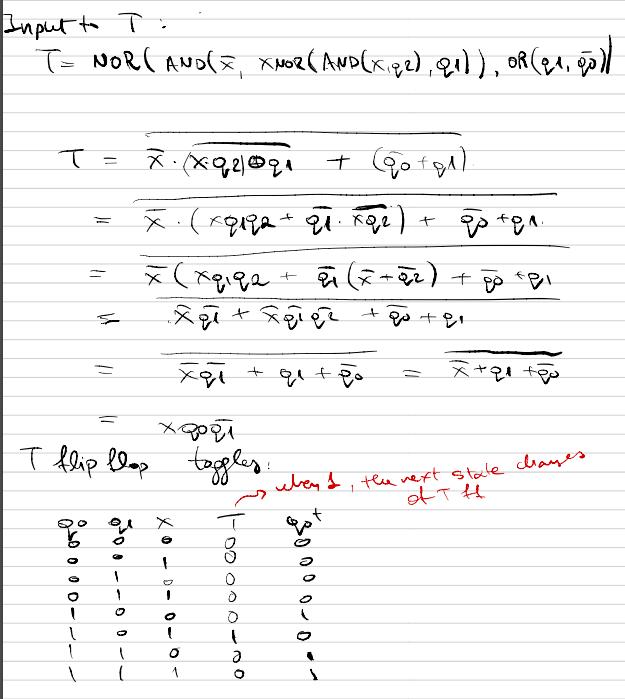 Input to T :
T = NOR( AND(x̅, XNOR(AND(x,q2), q1)), OR(q1, q̅0̅))
T = \overline{x̅ · \overline{(xq2) ⊕ q1} + (q̅0 + q1)}
= \overline{x̅ · (xq1q2 + q̅1̅ · \overline{xq2}) + q̅0̅ + q1}
= \overline{x̅ (xq1q2 + q̅1̅ (x̅ + q̅2̅) + q̅0̅ + q1}
= \overline{x̅ q̅1̅ + x̅ q̅1̅ q̅2̅ + q̅0̅ + q1}
= \overline{x̅ q̅1̅ + q1 + q̅0̅} = \overline{x̅ + q1 + q̅0̅}
= x q0 q̅1̅
T flip flop toggles:
→ when 1, the next state changes
of T ff
q0 q1 x T q0⁺
0 0 0 0 0
0 0 1 0 0
0 1 0 0 0
0 1 1 0 0
1 0 0 0 1
1 0 1 1 0
1 1 0 0 1
1 1 1 0 1